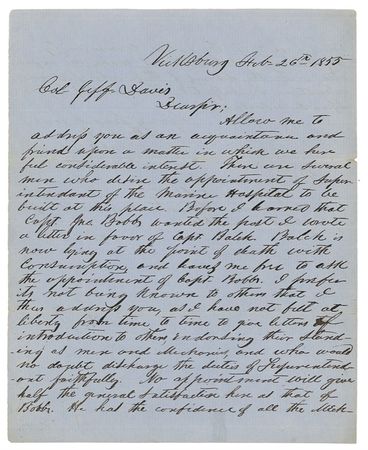 Vicksburg Feb- 26th 1855
Col Jeff Davis
Dear Sir:
Allow me to
address you as an acquaintance and
friend upon a matter in which we here
feel considerable interest There are several
men who desire the appointment of Super-
intendant of the Marine Hospital to be
built at this place. Before I learned that
Capt Jno. Bobb wanted the post I wrote
a letter in favor of Capt Balch. Balch is
now lying at the point of death with
Consumption, and leaves me free to ask
the appointment of Capt Bobb. I prefer
its not being known to others that I
thus address you, as I have not felt at
liberty from time to time to give letters of
introduction to others, endorsing their stand-
ing as men and Mechanics and who would
no doubt discharge the duties of Superintend-
ent faithfully. No appointment will give
half the general satisfaction here as that of
Bobb. He has the confidence of all the Mech-